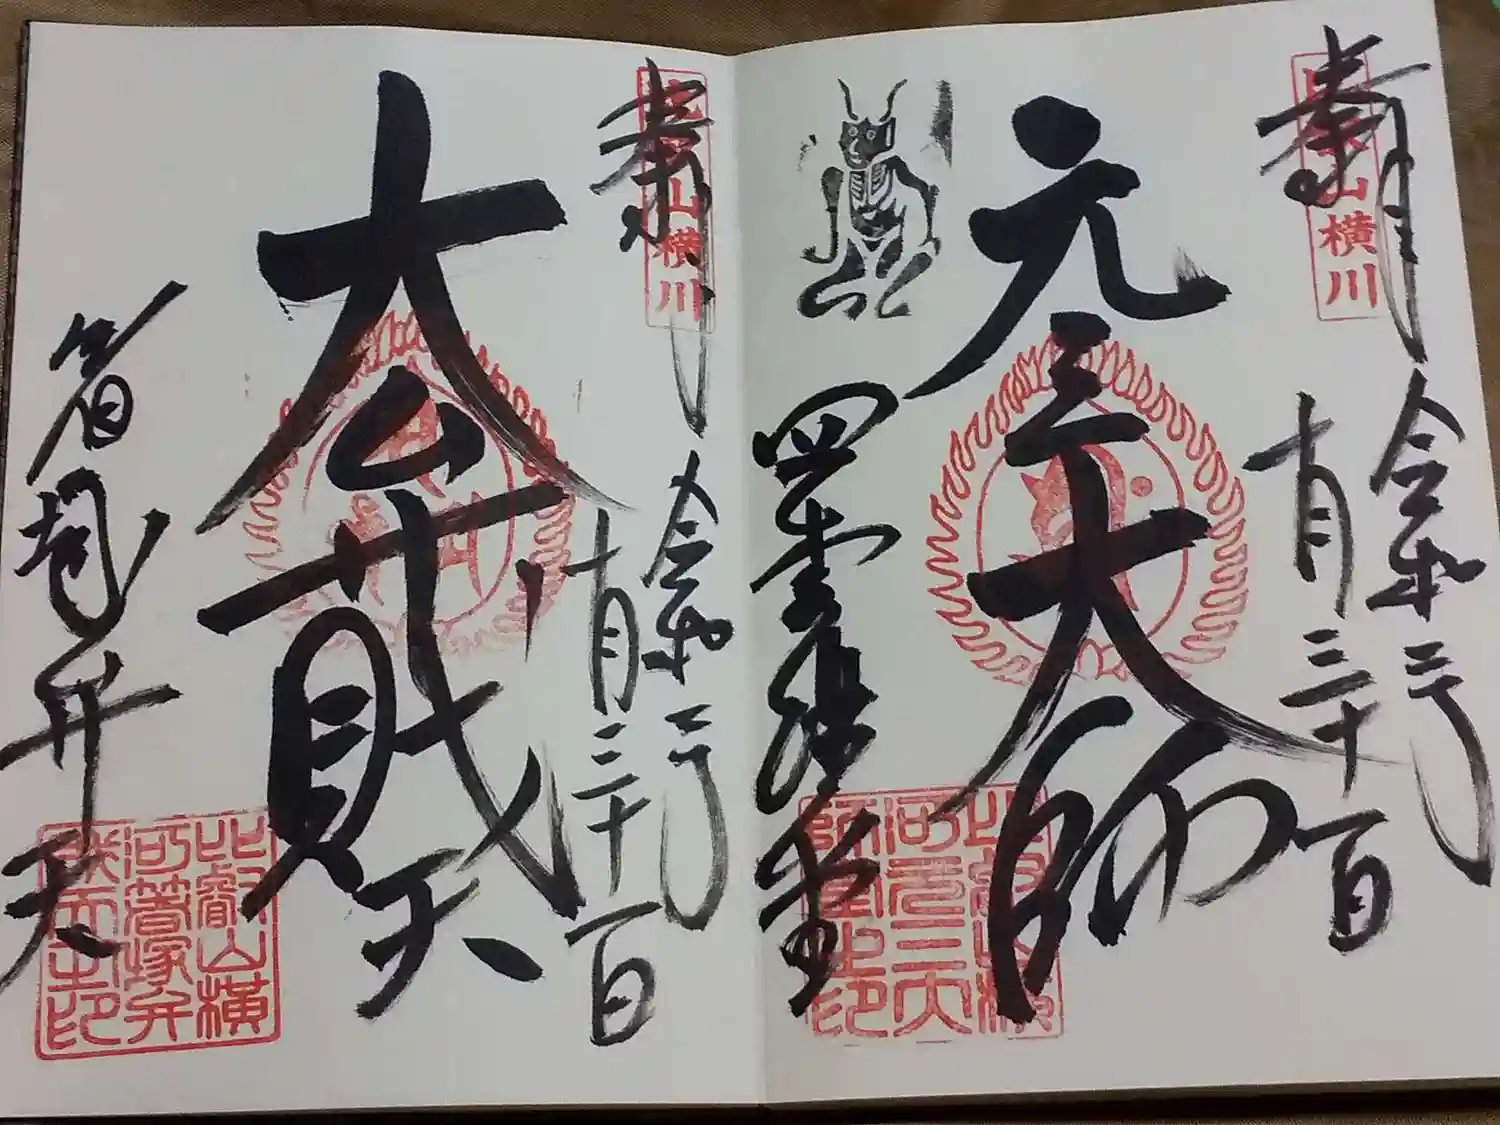 奉拝
比叡山横川
令和三年
十月三十一日
元三大師
四季講堂
比叡山横
河元三大
師堂之印
奉拝
比叡山横川
令和三年
十月三十一日
大弁財天
箸塚弁天
比叡山横
河箸塚弁
財天之印